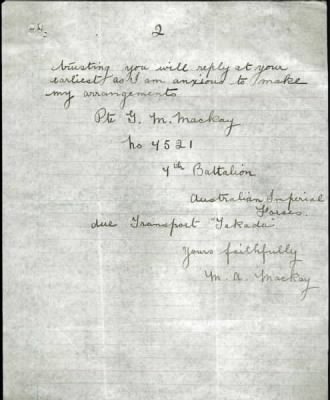 2
trusting you will reply at your
earliest as I am anxious to make
my arrangements
Pte G. M. Mackay
No 4521
4th Battalion
Australian Imperial
Forses.
due Transport "Takada"
Yours faithfully
M. A. Mackay